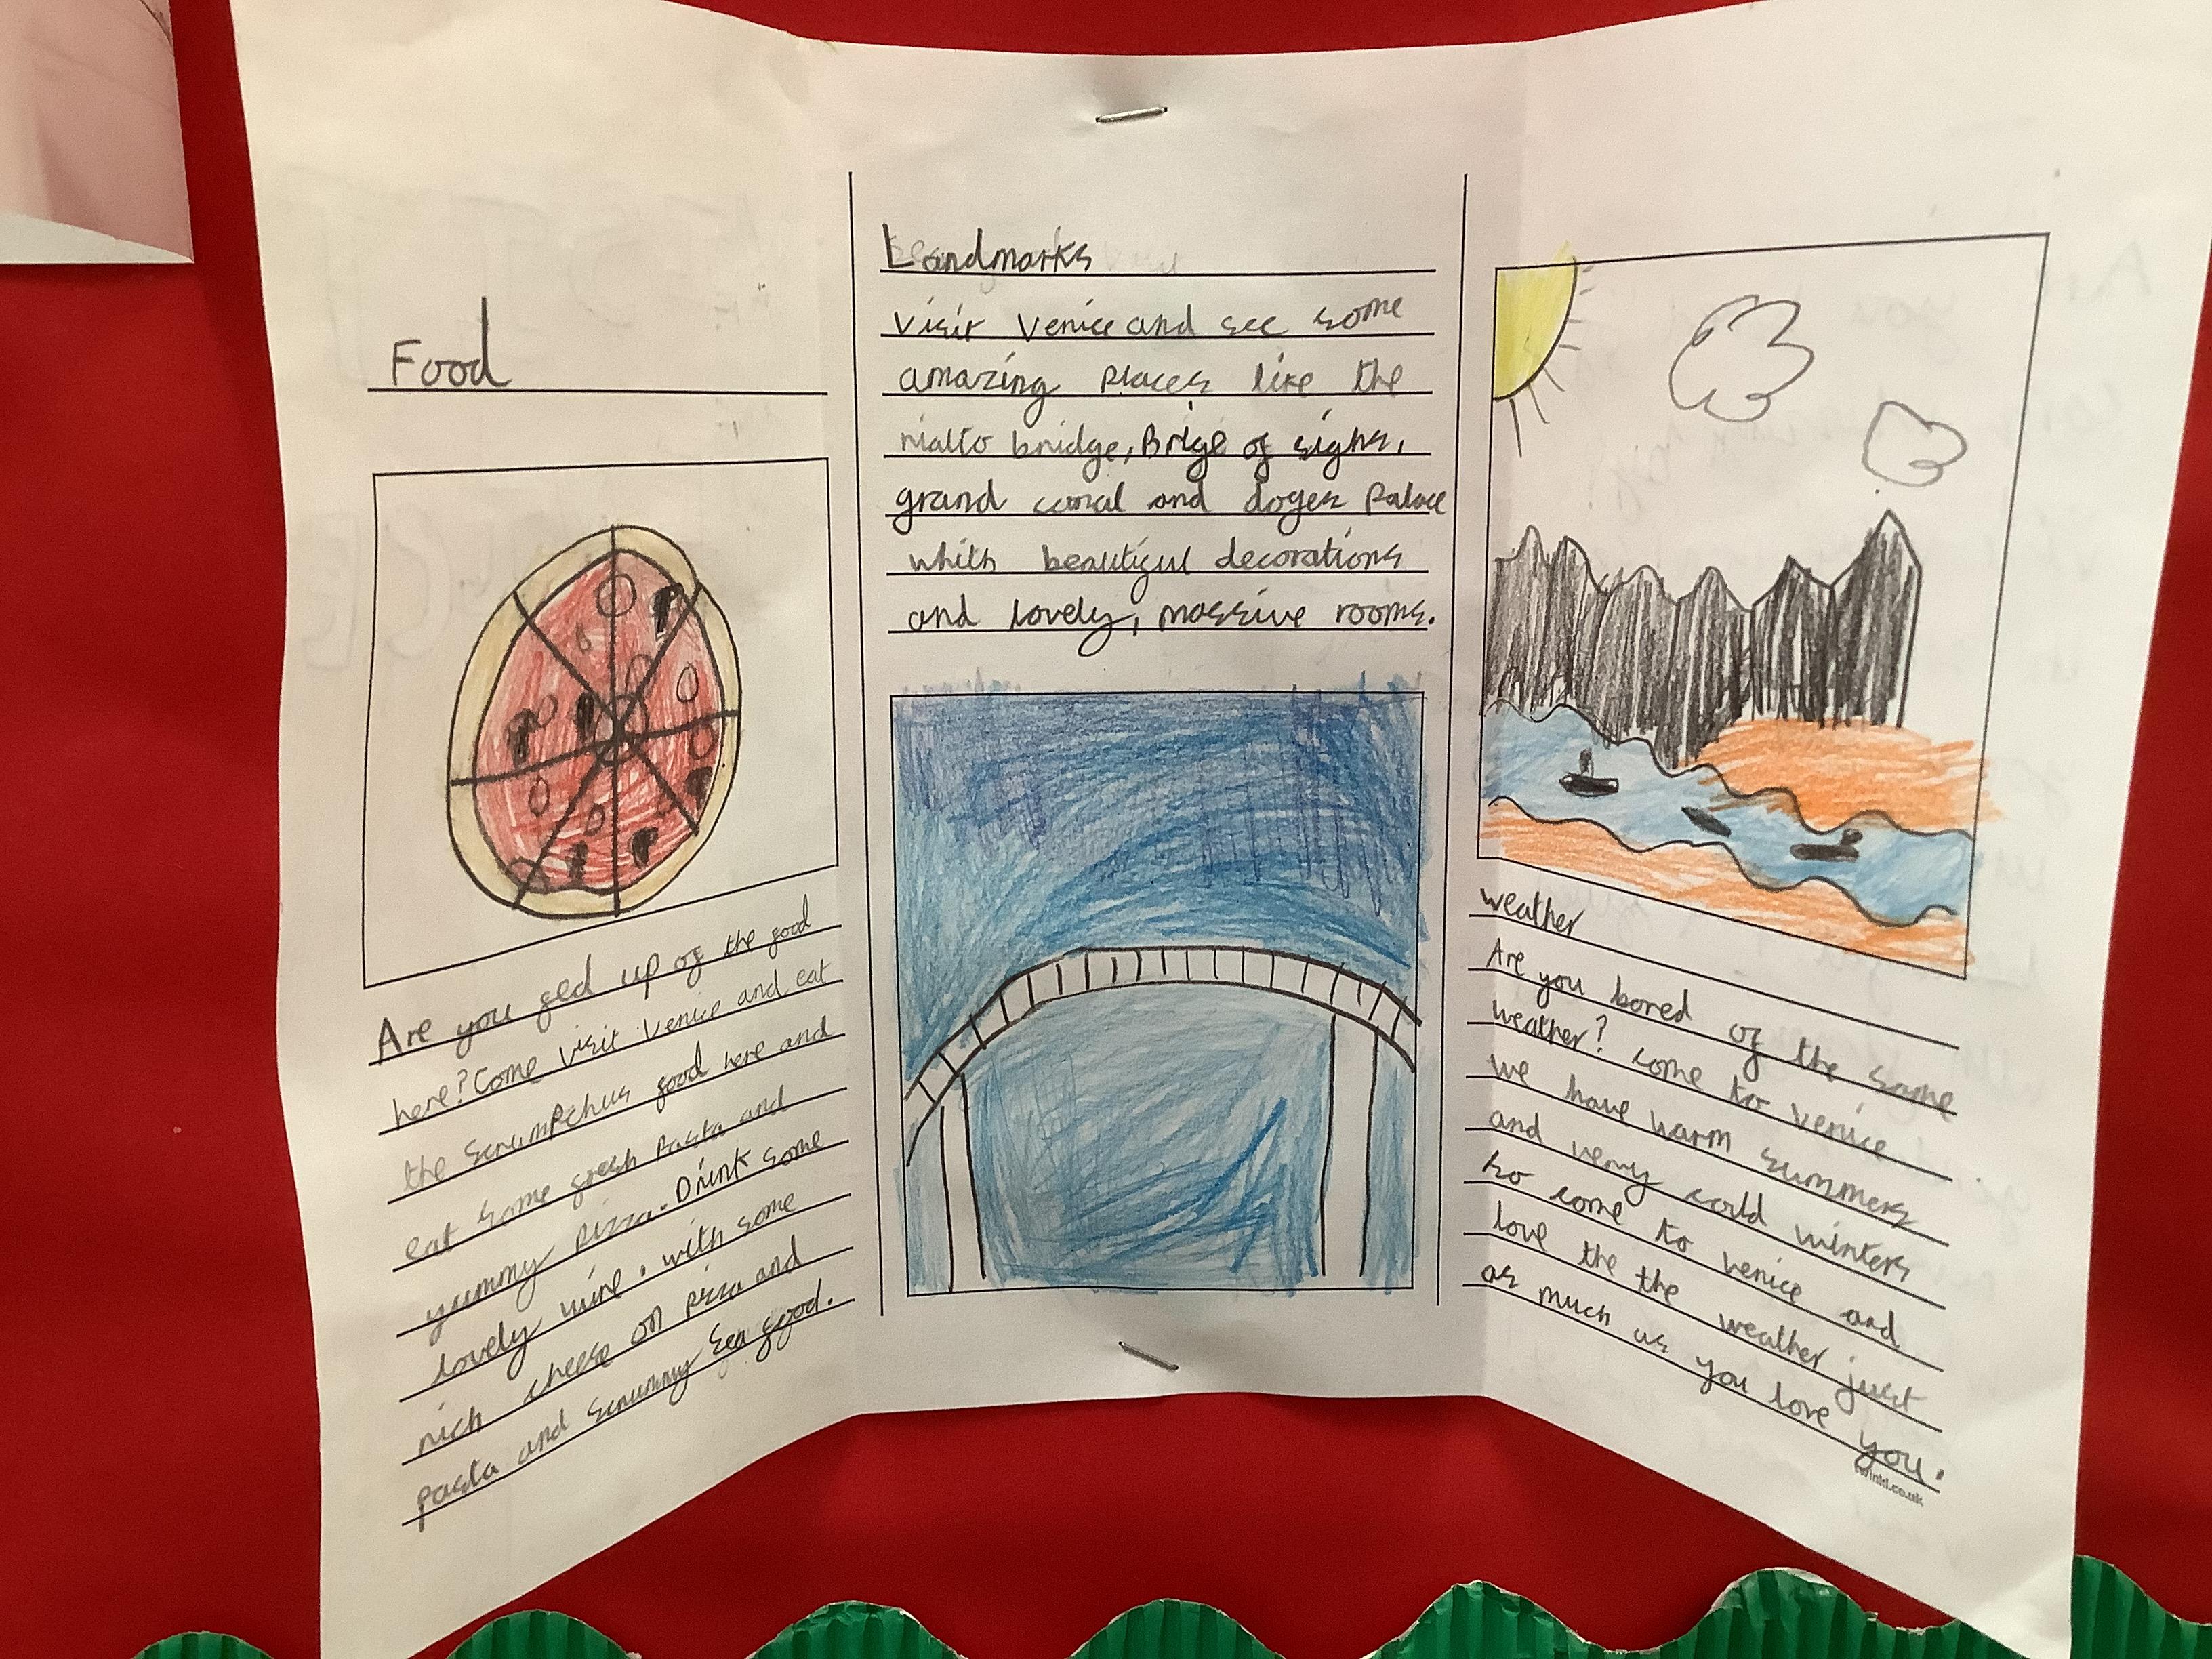 Food
Are you fed up of the food
here? Come visit Venice and eat
the scrumpchus food here and
eat some fresh pasta and
yummy pizza. Drink some
lovely wine. with some
rich cheese on pizza and
pasta and scrummy sea food.
Landmarks
visit Venice and see some
amazing places like the
rialto bridge, Brige of sighs,
grand canal and doges palace
whith beautiful decorations
and lovely, massive rooms.
weather
Are you bored of the same
weather? come to venice
we have warm summers
and very cold winters
so come to venice and
love the the weather just
as much us you love
you.
twinkl.co.uk